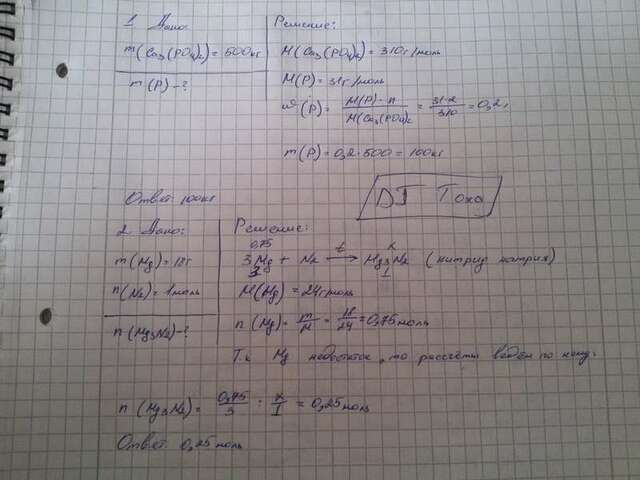 1. Дано:
m(Ca3(PO4)2) = 500кг
m(P) - ?
Решение:
M(Ca3(PO4)2) = 310г/моль
M(P) = 31г/моль
ω(P) = M(P) · n / M(Ca3(PO4)2 = 31·2 / 310 = 0,2
m(P) = 0,2 · 500 = 100кг
Ответ: 100кг
DJ Тоха
2. Дано:
m(Mg) = 18г
n(N2) = 1моль
n(Mg3N2) - ?
Решение:
0,75 x
3Mg + N2 t→ Mg3N2 (нитрид натрия)
3 1
M(Mg) = 24г/моль
n(Mg) = m/M = 18/24 = 0,75моль
Т.к Mg недостаток, то рассчёты ведём по нему.
n(Mg3N2) = 0,75/3 : x/1 = 0,25моль
Ответ: 0,25моль